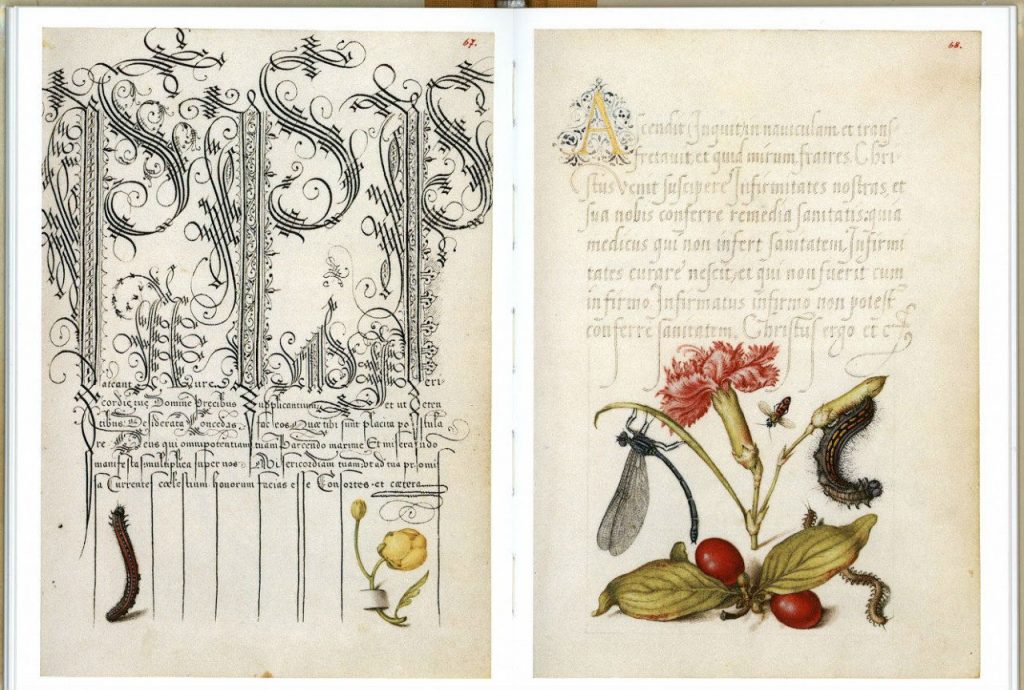 67.
cordiæ tuæ Domine Precibus Supplicantium, et ut Peten
tibus Desiderata Concedas fac eos Quæ tibi sunt placita postula
re Deus qui omnipotentiam tuam Parcendo maxime Et miserando
manifestas multiplica super nos Misericordiam tuam, ut ad tua promis
sa Currentes cælestium honorum facias esse Consortes. et cætera
68.
Ascendit, Inquit, in naviculam, et trans
fretavit, et quid mirum fratres. Chri
stus Venit suscipere Infirmitates nostras, et
sua nobis conferre remedia sanitatis: quia
medicus qui non infert sanitatem, Infirmi
tates curare nescit, et qui non fuerit cum
infirmo. Infirmatus infirmo non potest
conferre sanitatem. Christus ergo et c